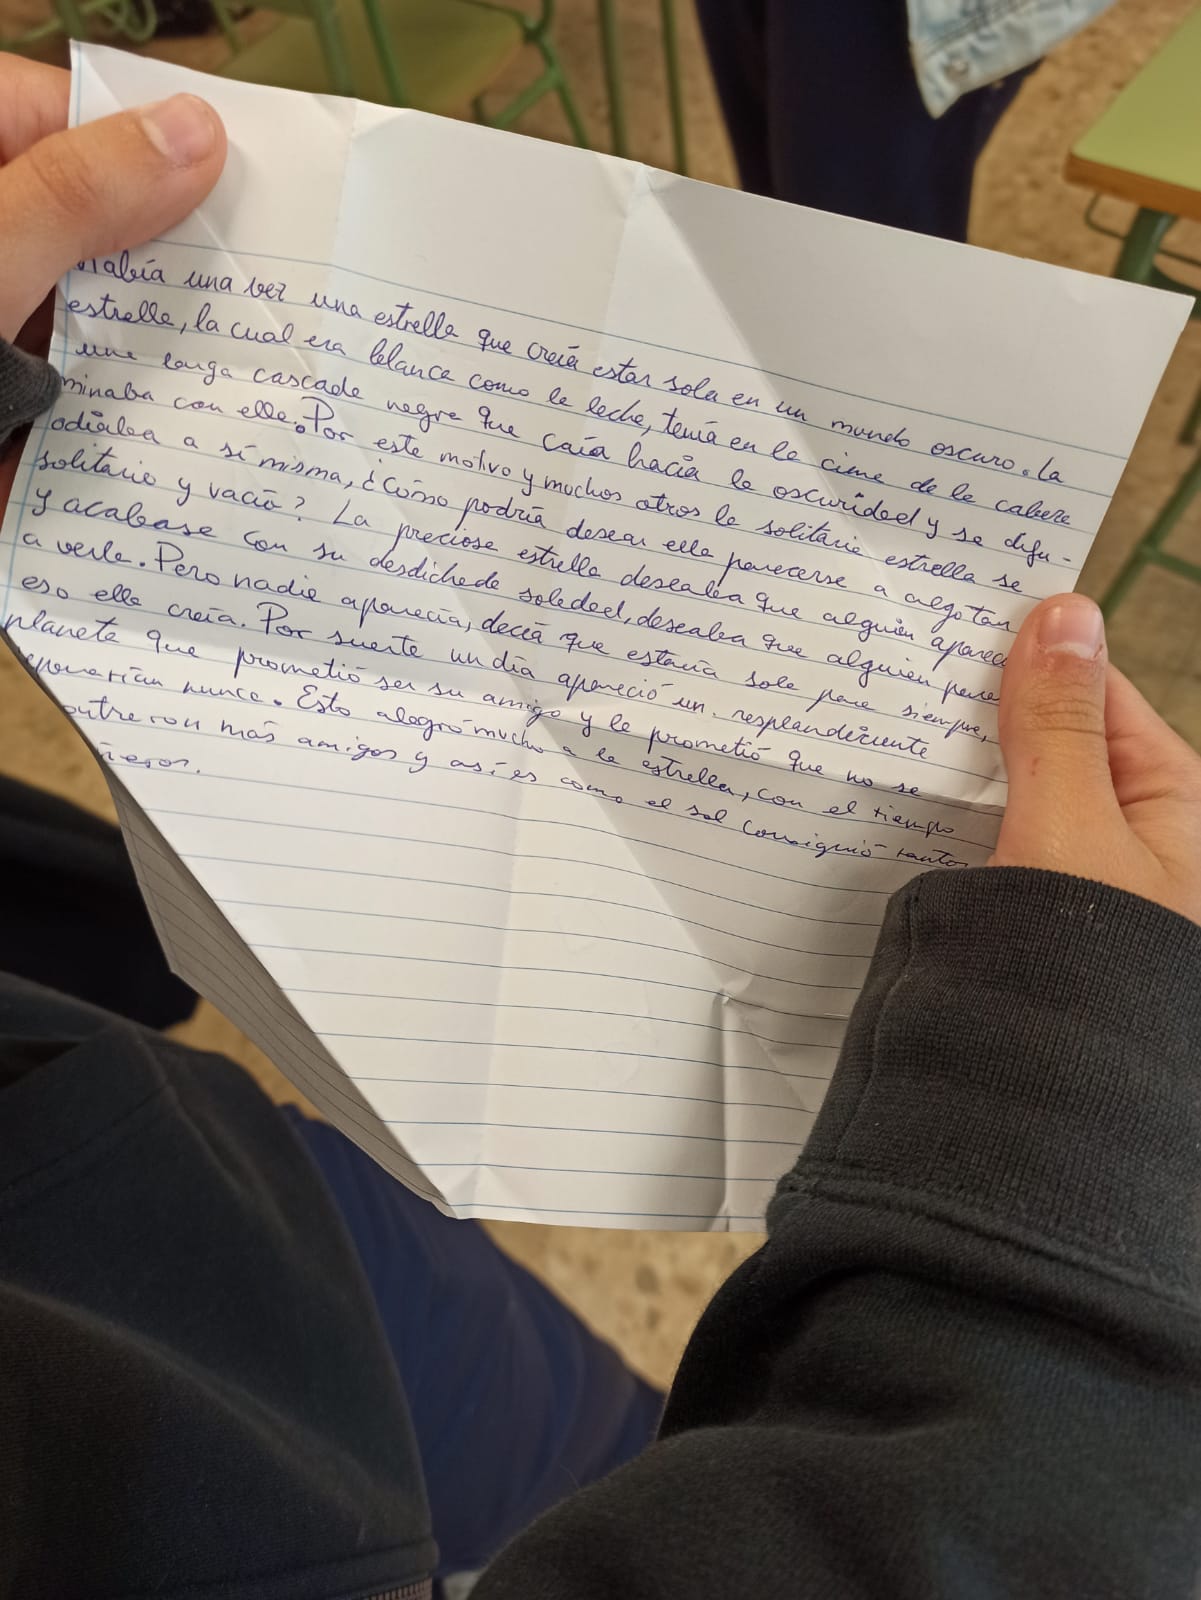 Había una vez una estrella que creía estar sola en un mundo oscuro. La
estrella, la cual era blanca como la leche, tenía en la cima de la cabeza
una larga cascada negra que caía hacia la oscuridad y se difu-
minaba con ella. Por este motivo y muchos otros la solitaria estrella se
odiaba a sí misma, ¿Cómo podría desear ella parecerse a algo tan
solitario y vacío? La preciosa estrella deseaba que alguien aparec
y acabase con su desdichada soledad, deseaba que alguien fuera
a verla. Pero nadie aparecía, decía que estaría sola para siempre,
eso ella creía. Por suerte un día apareció un resplandeciente
planeta que prometió ser su amigo y le prometió que no se
separarían nunca. Esto alegró mucho a la estrella, con el tiempo
más amigos y así es como el sol consiguió tantos